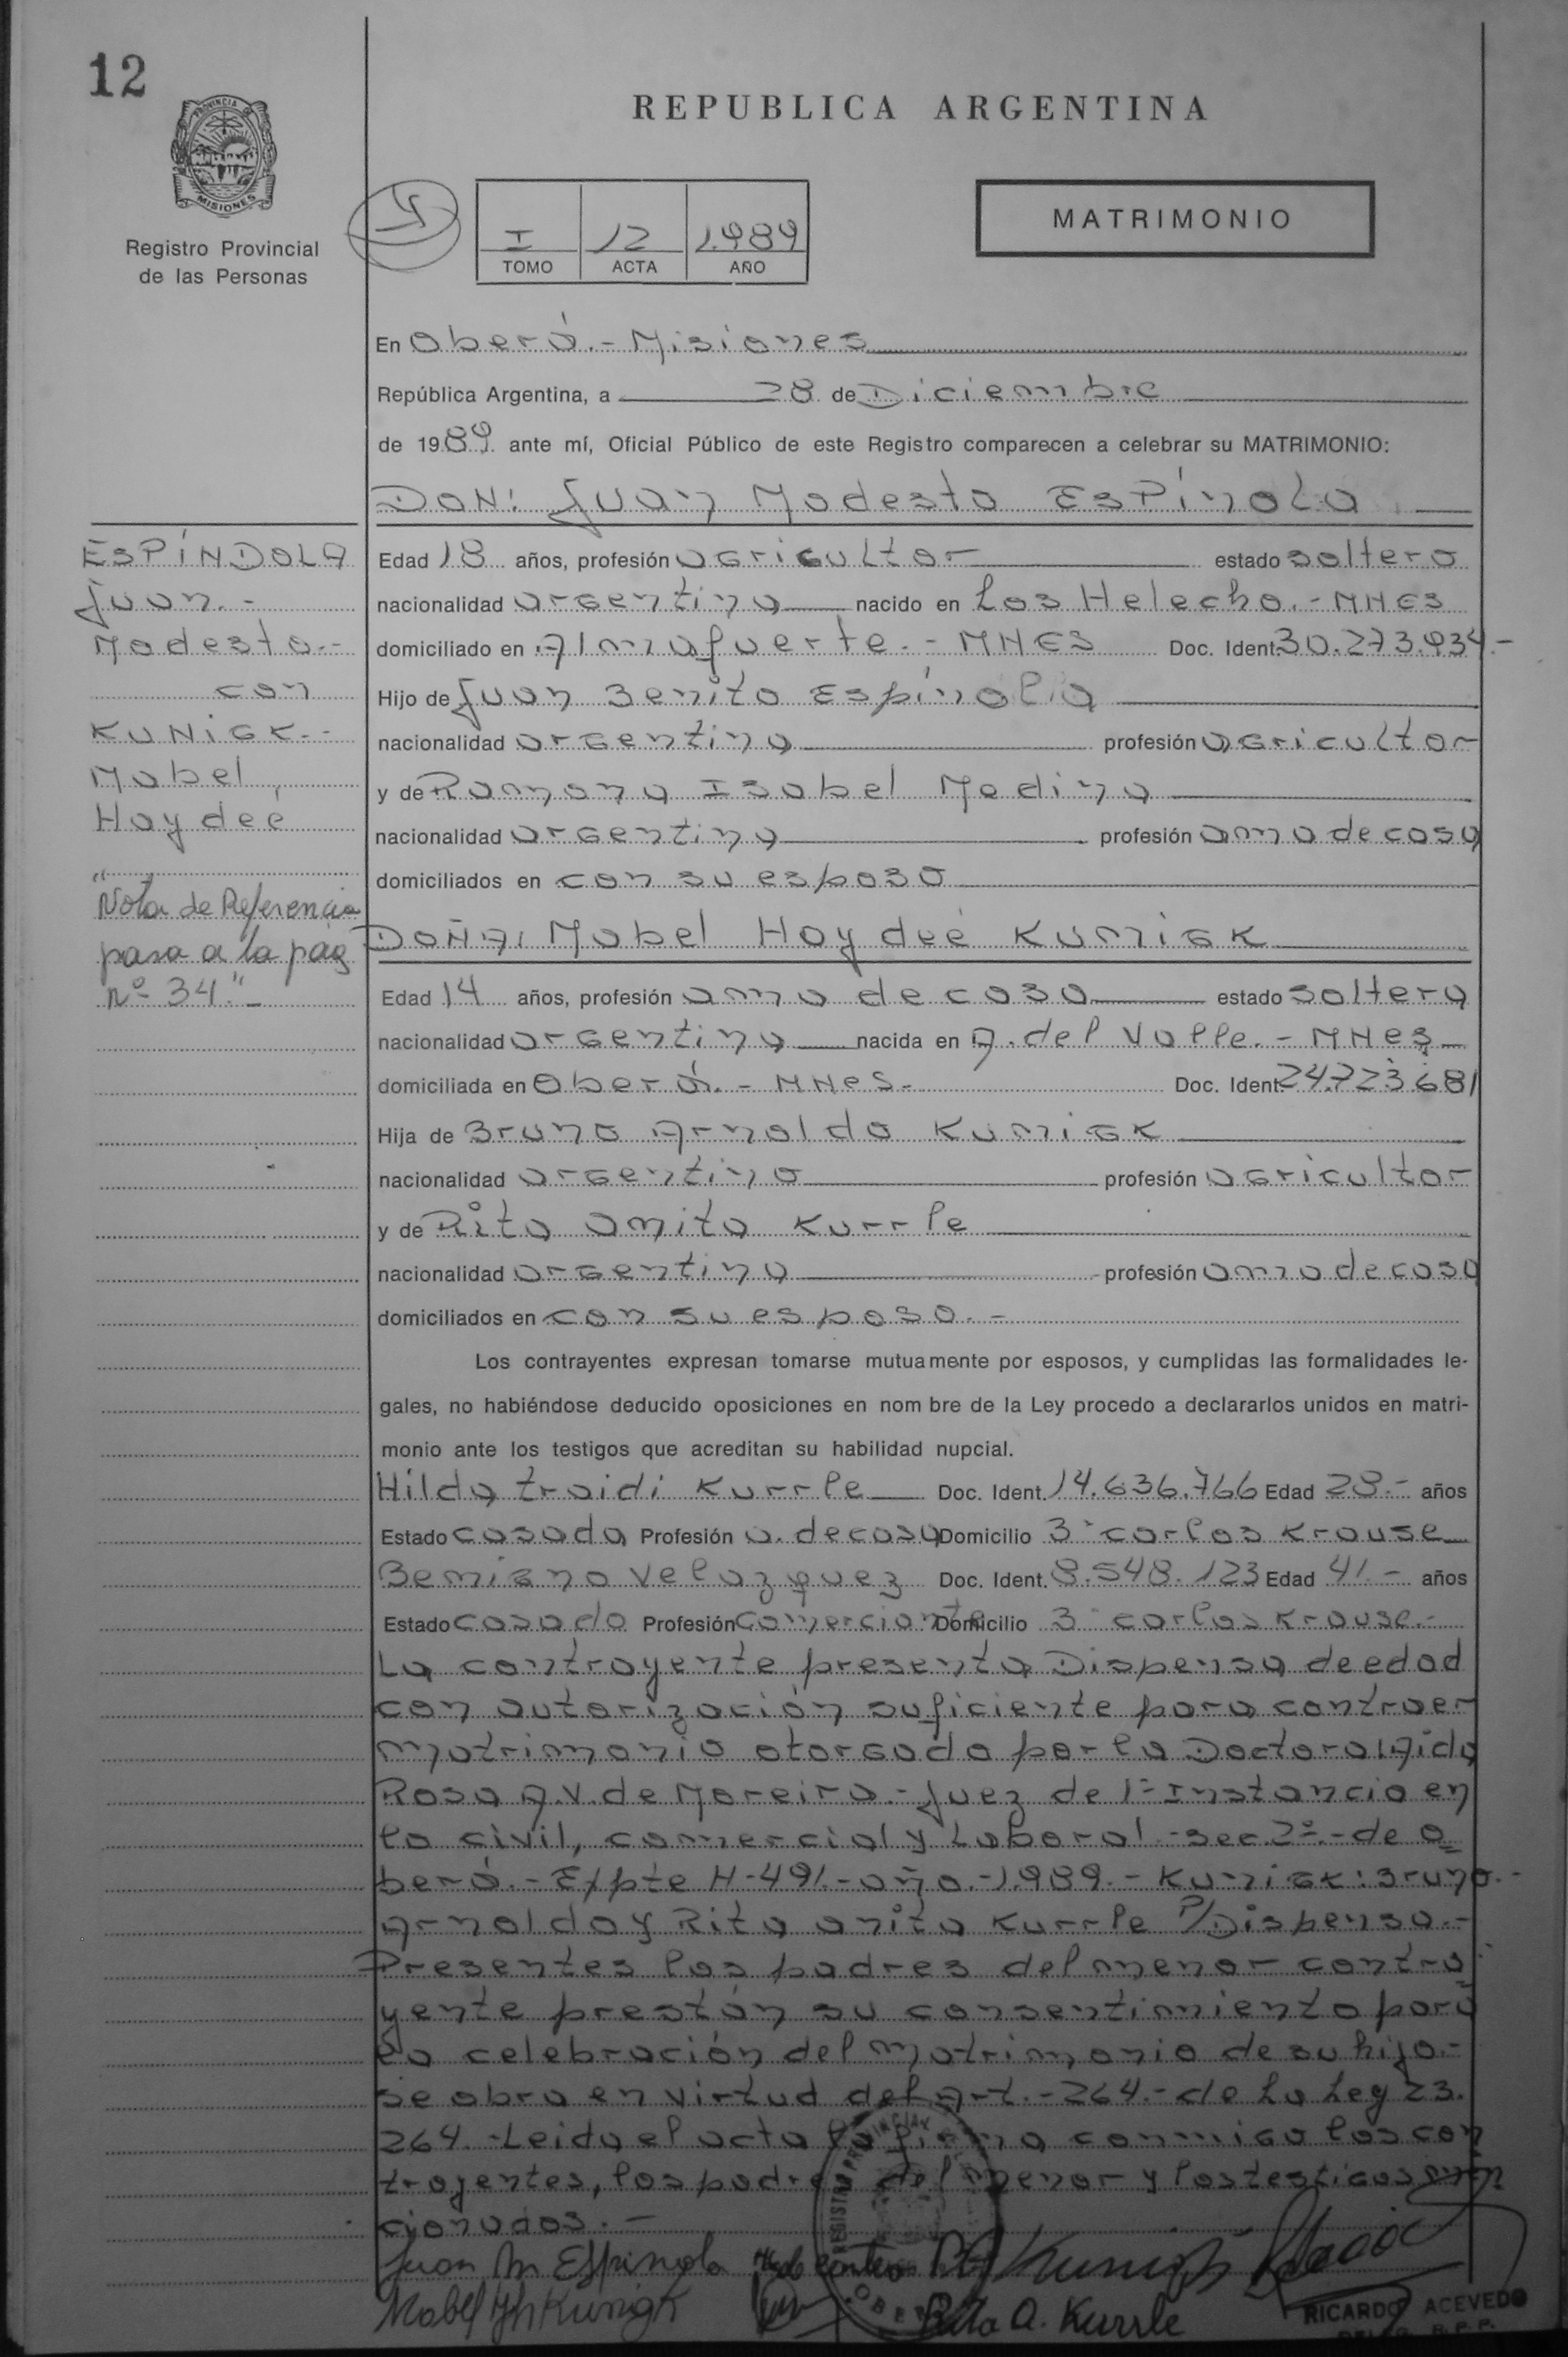 12
PROVINCIA DE
MISIONES
Registro Provincial
de las Personas
REPUBLICA ARGENTINA
I 12 1.989
TOMO ACTA AÑO
MATRIMONIO
En Oberá.- Misiones
República Argentina, a 28 de Diciembre
de 1989 ante mí, Oficial Público de este Registro comparecen a celebrar su MATRIMONIO:
DON: Juan Modesto ESPÍNOLA
ESPÍNDOLA
Juan.-
Modesto.-
con
KUNIGK.-
Mabel
Haydeé
"Nota de Referencia
pasa a la pág
nº 34".-
Edad 18 años, profesión agricultor estado soltero
nacionalidad argentina nacido en Los Helecho.- MNES
domiciliado en Almafuerte.- MNES Doc. Ident. 30.273.934.-
Hijo de Juan Benito Espínola
nacionalidad argentina profesión agricultor
y de Ramona Isabel Medina
nacionalidad argentina profesión ama de casa
domiciliados en con su esposo
DOÑA: Mabel Haydeé KUNIGK
Edad 14 años, profesión ama de casa estado soltera
nacionalidad argentina nacida en A. del Valle.- MNES
domiciliada en Oberá.- MNES.- Doc. Ident. 24.723.681
Hija de Bruno Arnoldo KUNIGK
nacionalidad argentino profesión agricultor
y de Rita Anita Kurrle
nacionalidad argentina profesión ama de casa
domiciliados en con su esposo.-
Los contrayentes expresan tomarse mutuamente por esposos, y cumplidas las formalidades le-
gales, no habiéndose deducido oposiciones en nom bre de la Ley procedo a declararlos unidos en matri-
monio ante los testigos que acreditan su habilidad nupcial.
Hilda Traidi Kurrle Doc. Ident. 14.636.766 Edad 28.- años
Estado casada Profesión a. de casa Domicilio 3 carlos Krause
Velazquez Doc. Ident. 8.548.123 Edad 41.- años
Estado casado Profesión comerciante Domicilio 3 carlos Krause.-
La contrayente presenta Dispensa de edad
con autorización suficiente para contraer
matrimonio otorgada por la Doctora: Aida
Rosa A.V. de Moreira.- Juez de 1ª Instancia en
lo civil, comercial y Laboral.- sec 2ª.- de O
berá.- Expte H-491.- año.- 1.989.- Kunigk: Bruno.-
Arnoldo y Rita anita Kurrle P/Dispensa.-
Presentes los padres del menor contra
yente prestán su consentimiento para
la celebración del matrimonio de su hijo.-
se obra en virtud del Art.- 264.- de La Ley 23.
264.- Leida el acta la firma conmigo los con
trayentes, los padres del menor y los testigos men
cionados.-
Juan M Espinola
Mabel H Kunigk
Rita A. Kurrle
RICARDO ACEVEDO
DELEG. R.P.P.